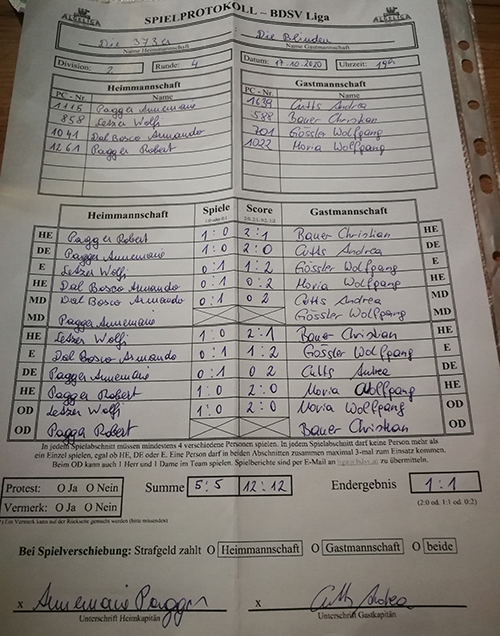 SPIELPROTOKOLL – BDSV Liga
Die 373er Die Blinden
Name Heimmannschaft Name Gastmannschaft
Division: 2 Runde: 4 Datum: 17.10.2020 Uhrzeit: 19
Heimmannschaft Gastmannschaft
PC - Nr. Name PC - Nr. Name
1116 Pagger Annemarie 1639 Cutts Andrea
858 Lesser Wolfi 588 Bauer Christian
1041 Dal Bosco Armando 701 Gössler Wolfgang
1261 Pagger Robert 1022 Moria Wolfgang
Heimmannschaft Spiele Score Gastmannschaft
HE Pagger Robert 1:0 2:1 Bauer Christian HE
DE Pagger Annemarie 1:0 2:0 Cutts Andrea DE
E Lesser Wolfi 0:1 1:2 Gössler Wolfgang E
HE Dal Bosco Armando 0:1 0 2 Moria Wolfgang HE
MD Dal Bosco Armando 0:1 0 2 Cutts Andrea MD
MD Pagger Annemarie Gössler Wolfgang MD
HE Lesser Wolfi 1:0 2:1 Bauer Christian HE
E Dal Bosco Armando 0:1 1:2 Gössler Wolfgang E
DE Pagger Annemarie 0:1 0 2 Cutts Andrea DE
HE Pagger Robert 1:0 2:0 Moria Wolfgang HE
OD Lesser Wolfi 1:0 2:0 Moria Wolfgang OD
OD Pagga Robert Bauer Christian OD
In jedem Spielabschnitt müssen mindestens 4 verschiedene Personen spielen. In jedem Spielabschnitt darf keine Person mehr als
ein Einzel spielen, egal ob HE, DE oder E. Eine Person darf in beiden Abschnitten zusammen maximal 3-mal zum Einsatz kommen.
Beim OD kann auch 1 Herr und 1 Dame im Team spielen. Spielberichte sind per E-Mail an zu übermitteln.
Protest: O Ja O Nein Summe 5:5 12:12 Endergebnis 1:1
Vermerk: O Ja O Nein (2:0 od. 1:1 od. 0:2)
*) Ein Vermerk kann auf der Rückseite gemacht werden (bitte ankreuzen)
Bei Spielverschiebung: Strafgeld zahlt O Heimmannschaft O Gastmannschaft O beide
x Annemarie Pagger x Cutts Andrea
Unterschrift Heimkapitän Unterschrift Gastkapitän